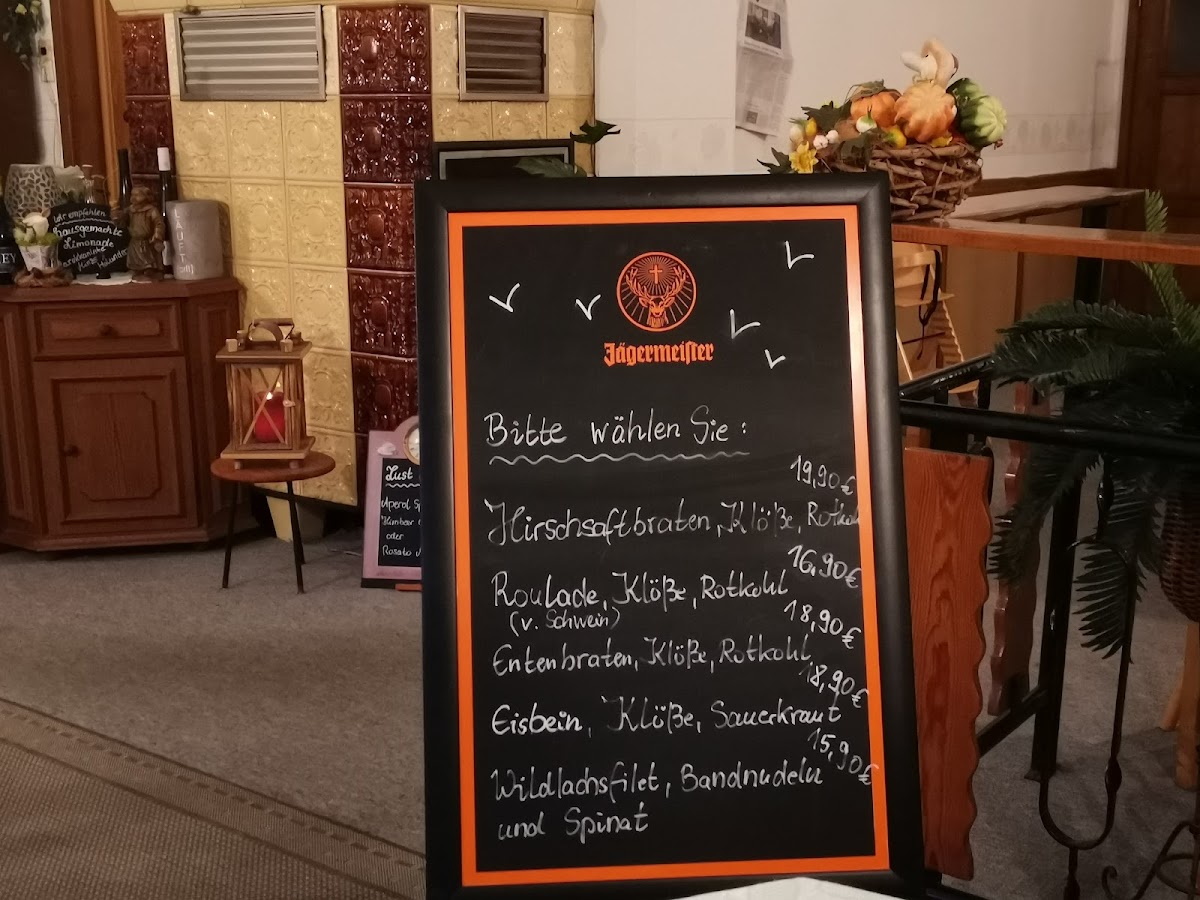 Wir empfehlen
hausgemachte
Limonade
Holunder
LAUF
Lust
Aperol Sp
oder
Rosato
Jägermeister
Bitte wählen Sie:
19,90€
Hirschsaftbraten, Klöße, Rotkohl
16,90€
Roulade, Klöße, Rotkohl
(v. Schwein)
18,90€
Entenbraten, Klöße, Rotkohl
18,90€
Eisbein, Klöße, Sauerkraut
15,90€
Wildlachsfilet, Bandnudeln
und Spinat